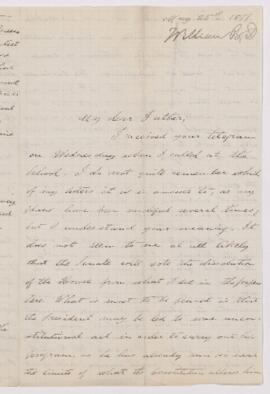 My dear Father,
I received your telegram
on Wednesday when I called at the
school. I do not quite remember which
of my letters it is in answer to, as my
plans have been modified several times,
but I understand your meaning. It
does not seem to me at all likely
that the Senate will vote the dissolution
of the House from what I see in the papers
here. What is most to be feared is that
the President may be led to some uncon-
stitutional act in order to carry out his
program, as he has already
the limits of what the Constitution allows him